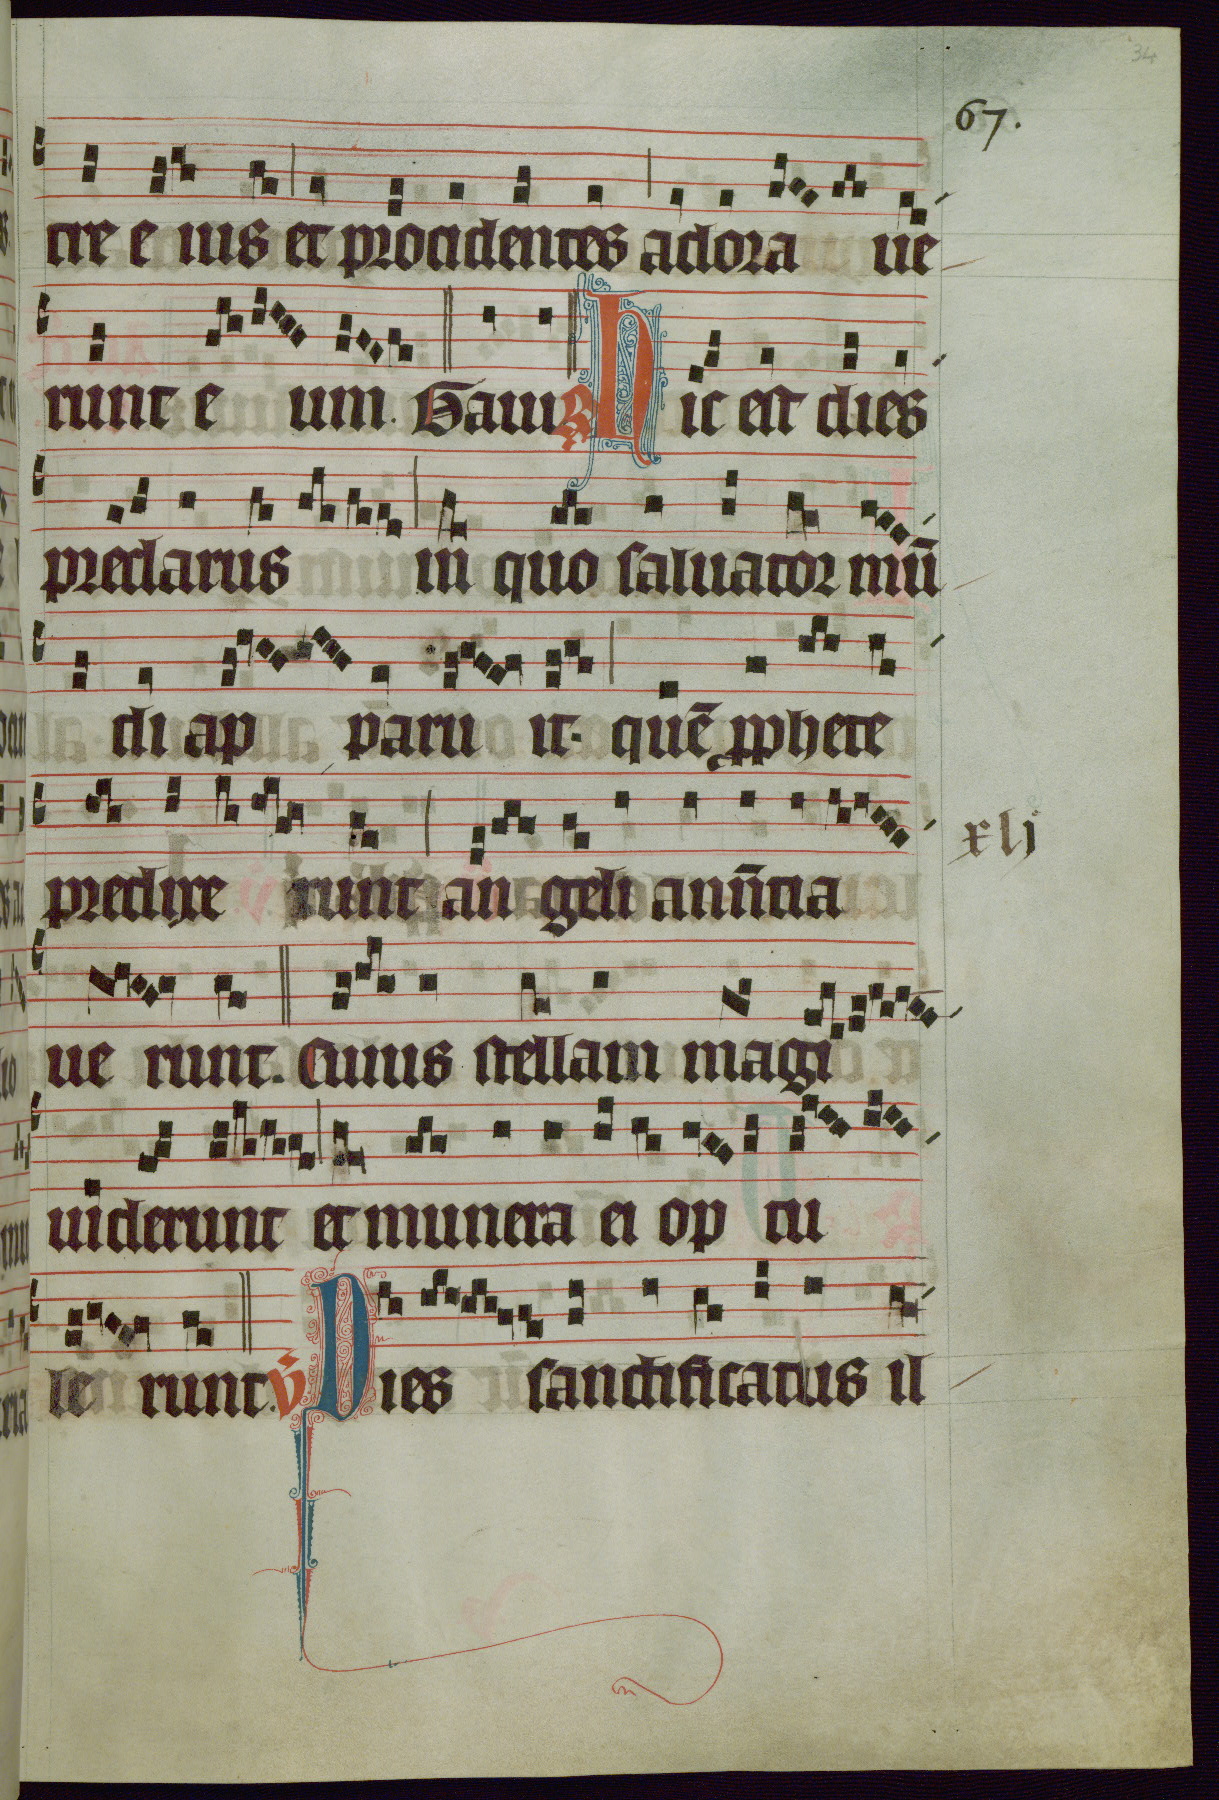 34
67.
tre e ius et procidentes adora ue
runt e um. Gaui R Hic est dies
preclarus in quo saluator mū
di ap paru it. quē pphete
predixe runt an geli anūtia
xlj
ue runt. Cuius stellam magi
uiderunt et munera ei op tu
le runt. V̄ Dies sanctificatus il